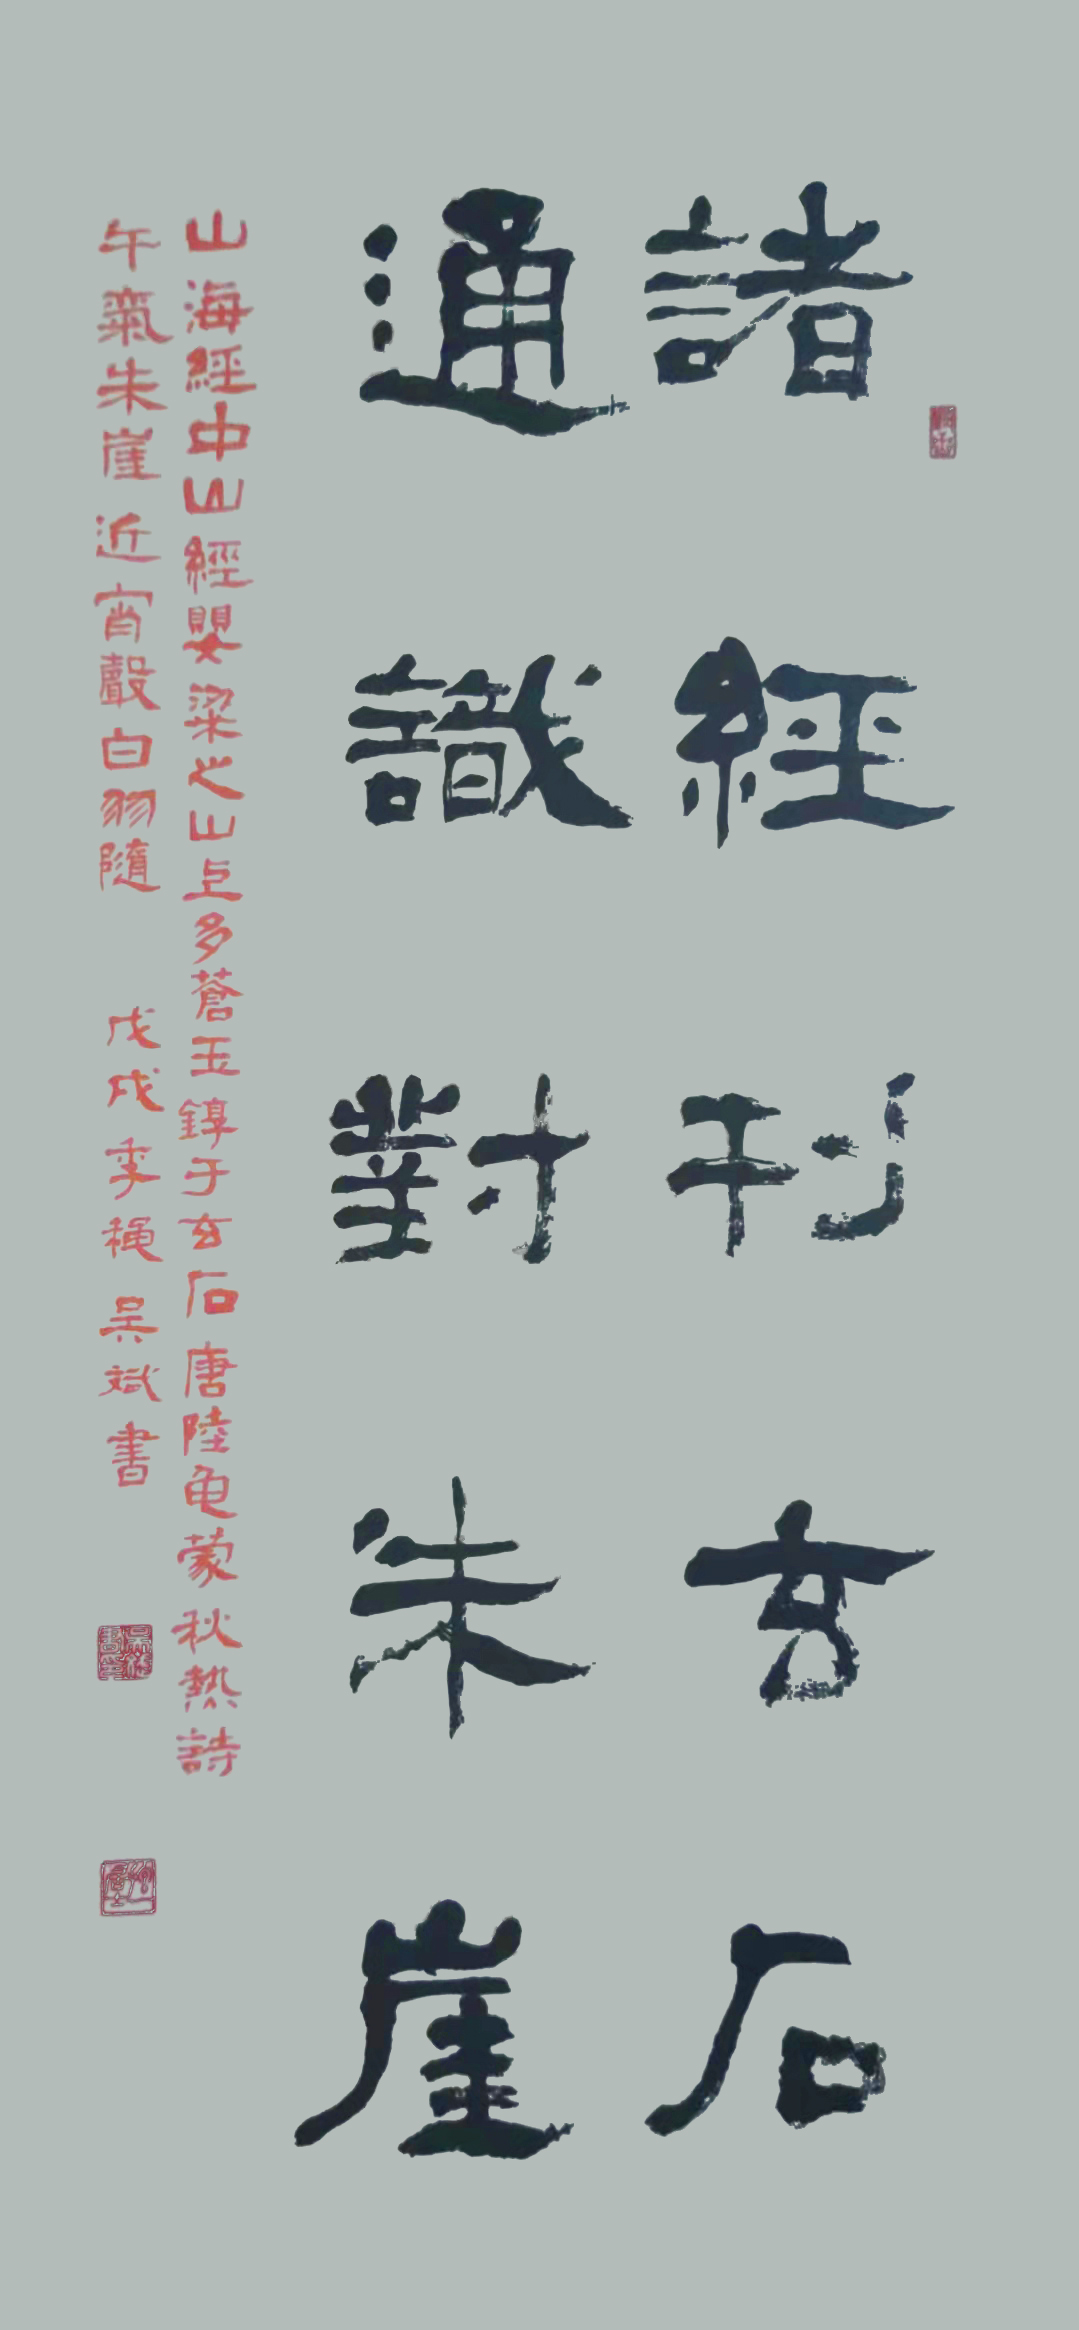 諸經刊玄石
通識對朱崖
山海經中山經嬰梁之山上多蒼玉錞于玄石唐陸龜蒙秋熱詩
午氣朱崖近宵聲白羽隨 戊戌季穐吳斌書